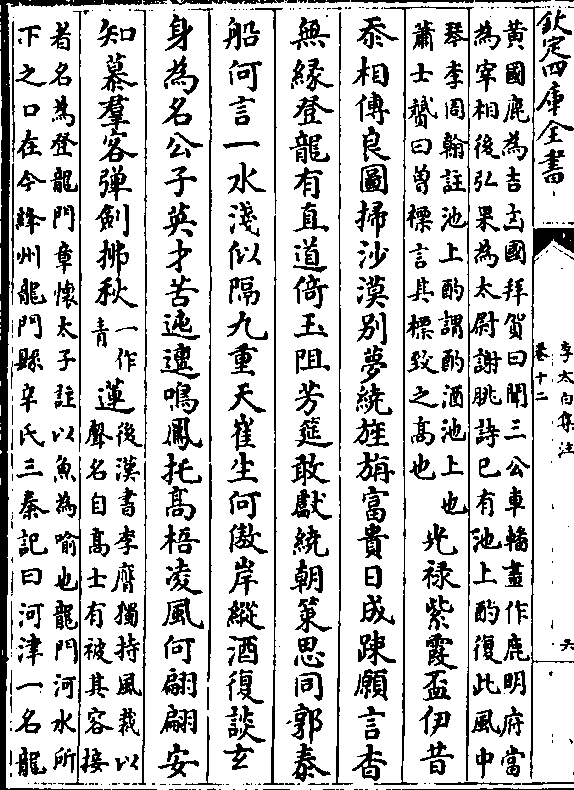 欽定四庫全書
李太白集注
卷十二
六
黄國鹿為吉㓙國拜賀曰聞三公車轓畫作鹿明府當
為宰相後弘果為太尉謝朓詩已有池上酌復此風中
琴李周翰註池上酌謂酌酒池上也
蕭士贇曰曾標言其標致之髙也
光禄紫霞盃伊昔
忝相傳良圖掃沙漠别夢繞旌旃富貴日成踈願言杳
無縁登龍有直道倚玉阻芳筵敢獻繞朝策思同郭泰
船何言一水淺似隔九重天崔生何傲岸縱酒復談玄
身為名公子英才苦迍邅鳴鳳托髙梧凌風何翩翩安
知慕羣客弹劍拂秋
一作
青
蓮
後漢書李膺獨持風裁以
聲名自髙士有被其容接
者名為登龍門章懷太子註以魚為喻也龍門河水所
下之口在今絳州龍門縣辛氏三秦記曰河津一名龍